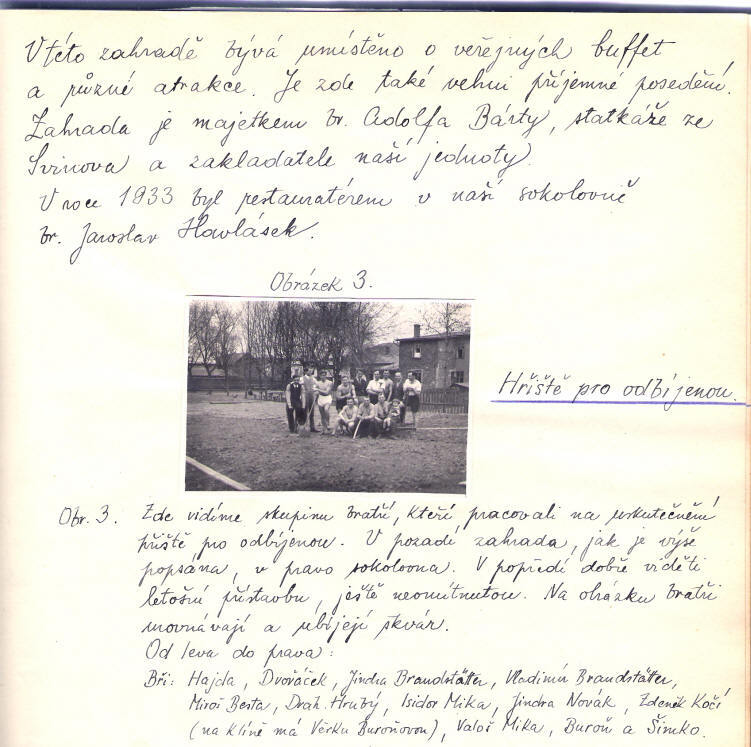 V této zahradě bývá umístěno o veřejných buffet
a různé atrakce. Je zde také velmi příjemné posedění.
Zahrada je majetkem br. Adolfa Bárty, statkáře ze
Svinova a zakladatele naší jednoty.
V roce 1933 byl restauratérem v naší sokolovně
br. Jaroslav Havlásek.
Obrázek 3.
Hřiště pro odbíjenou.
Obr. 3. Zde vidíme skupinu bratří, kteří pracovali na uskutečnění
hřiště pro odbíjenou. V pozadí zahrada, jak je výše
popsána, v pravo sokolovna. V popředí dobře viděti
letošní přístavbu, ještě neomítnutou. Na obrázku bratři
urovnávají a ubíjejí škvár.
Od leva do prava:
Bří: Hajda, Dvořáček, Jindra Brandstätter, Vladimír Brandstätter,
Miroš Besta, Drah. Hrubý, Isidor Mika, Jindra Novák, Zdeněk Kočí
(na klíně má Věrku Buroňovou), Valoš Mika, Buroň a Šimko.